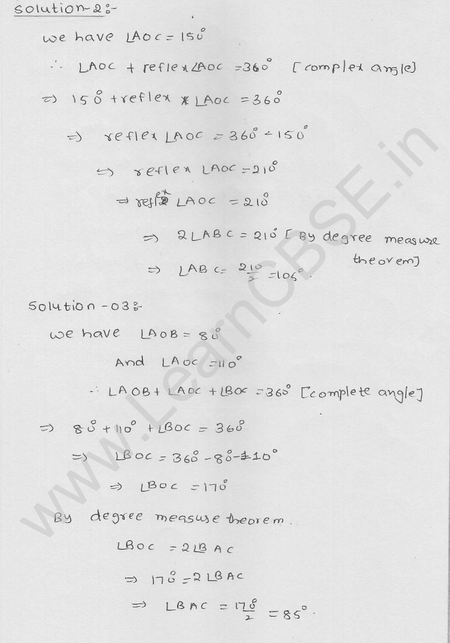 Solution-2:-
we have ∠AOC = 150°
∴ ∠AOC + reflex∠AOC = 360° [complex angle]
⇒ 150° + reflex ∠AOC = 360°
⇒ reflex ∠AOC = 360° - 150°
⇒ reflex ∠AOC = 210°
⇒ reflex ∠AOC = 210°
⇒ 2∠ABC = 210° [By degree measure
theorem]
⇒ ∠ABC = 210/2 = 105°.
Solution -03:-
We have ∠AOB = 80°
And ∠AOC = 110°
∴ ∠AOB + ∠AOC + ∠BOC = 360° [complete angle]
⇒ 80° + 110° + ∠BOC = 360°
⇒ ∠BOC = 360° - 80° - 110°
⇒ ∠BOC = 170°
By degree measure theorem.
∠BOC = 2∠BAC
⇒ 170° = 2∠BAC
⇒ ∠BAC = 170°/2 = 85°.
www.LearnCBSE.in